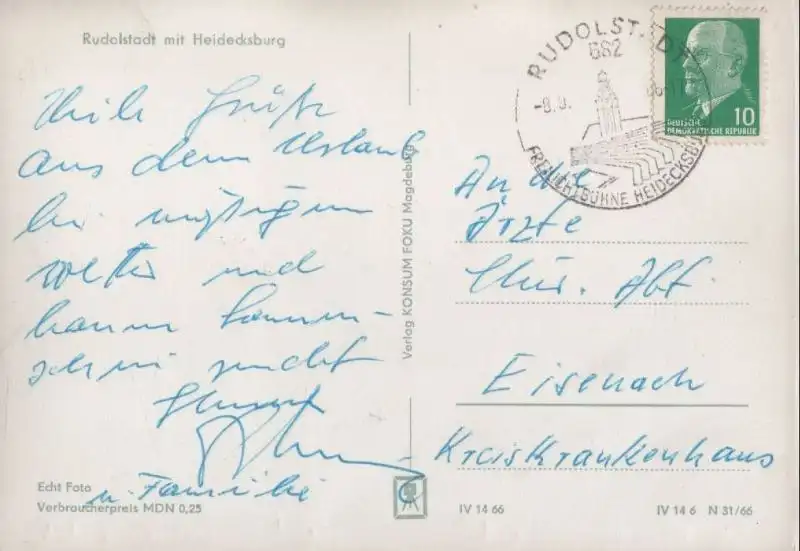 Rudolstadt mit Heidecksburg
Viele Grüße
aus dem Urlaub
bei
Wetter und
kaum Sonnen-
schein sendet
u. Familie
Echt Foto
Verbraucherpreis MDN 0,25
Verlag KONSUM FOKU Magdeburg
RUDOLST
682
-9.9.
FREILICHTBÜHNE HEIDECKSBU
10
DEUTSCHE
DEMOKRATISCHE REPUBLIK
An die
Ärzte
Chir. Abt.
Eisenach
Kreiskrankenhaus
IV 14 66
IV 14 6 N 31/66